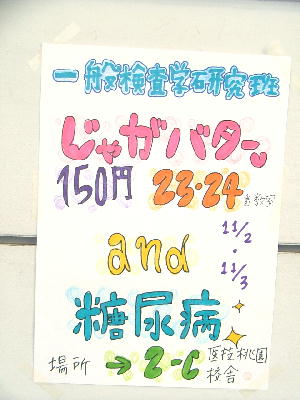 一般検査学研究班
じゃがバター
150円 23・24
11/2
・
11/3
and
糖尿病
場所 → 2-C 医技桃園
校舎